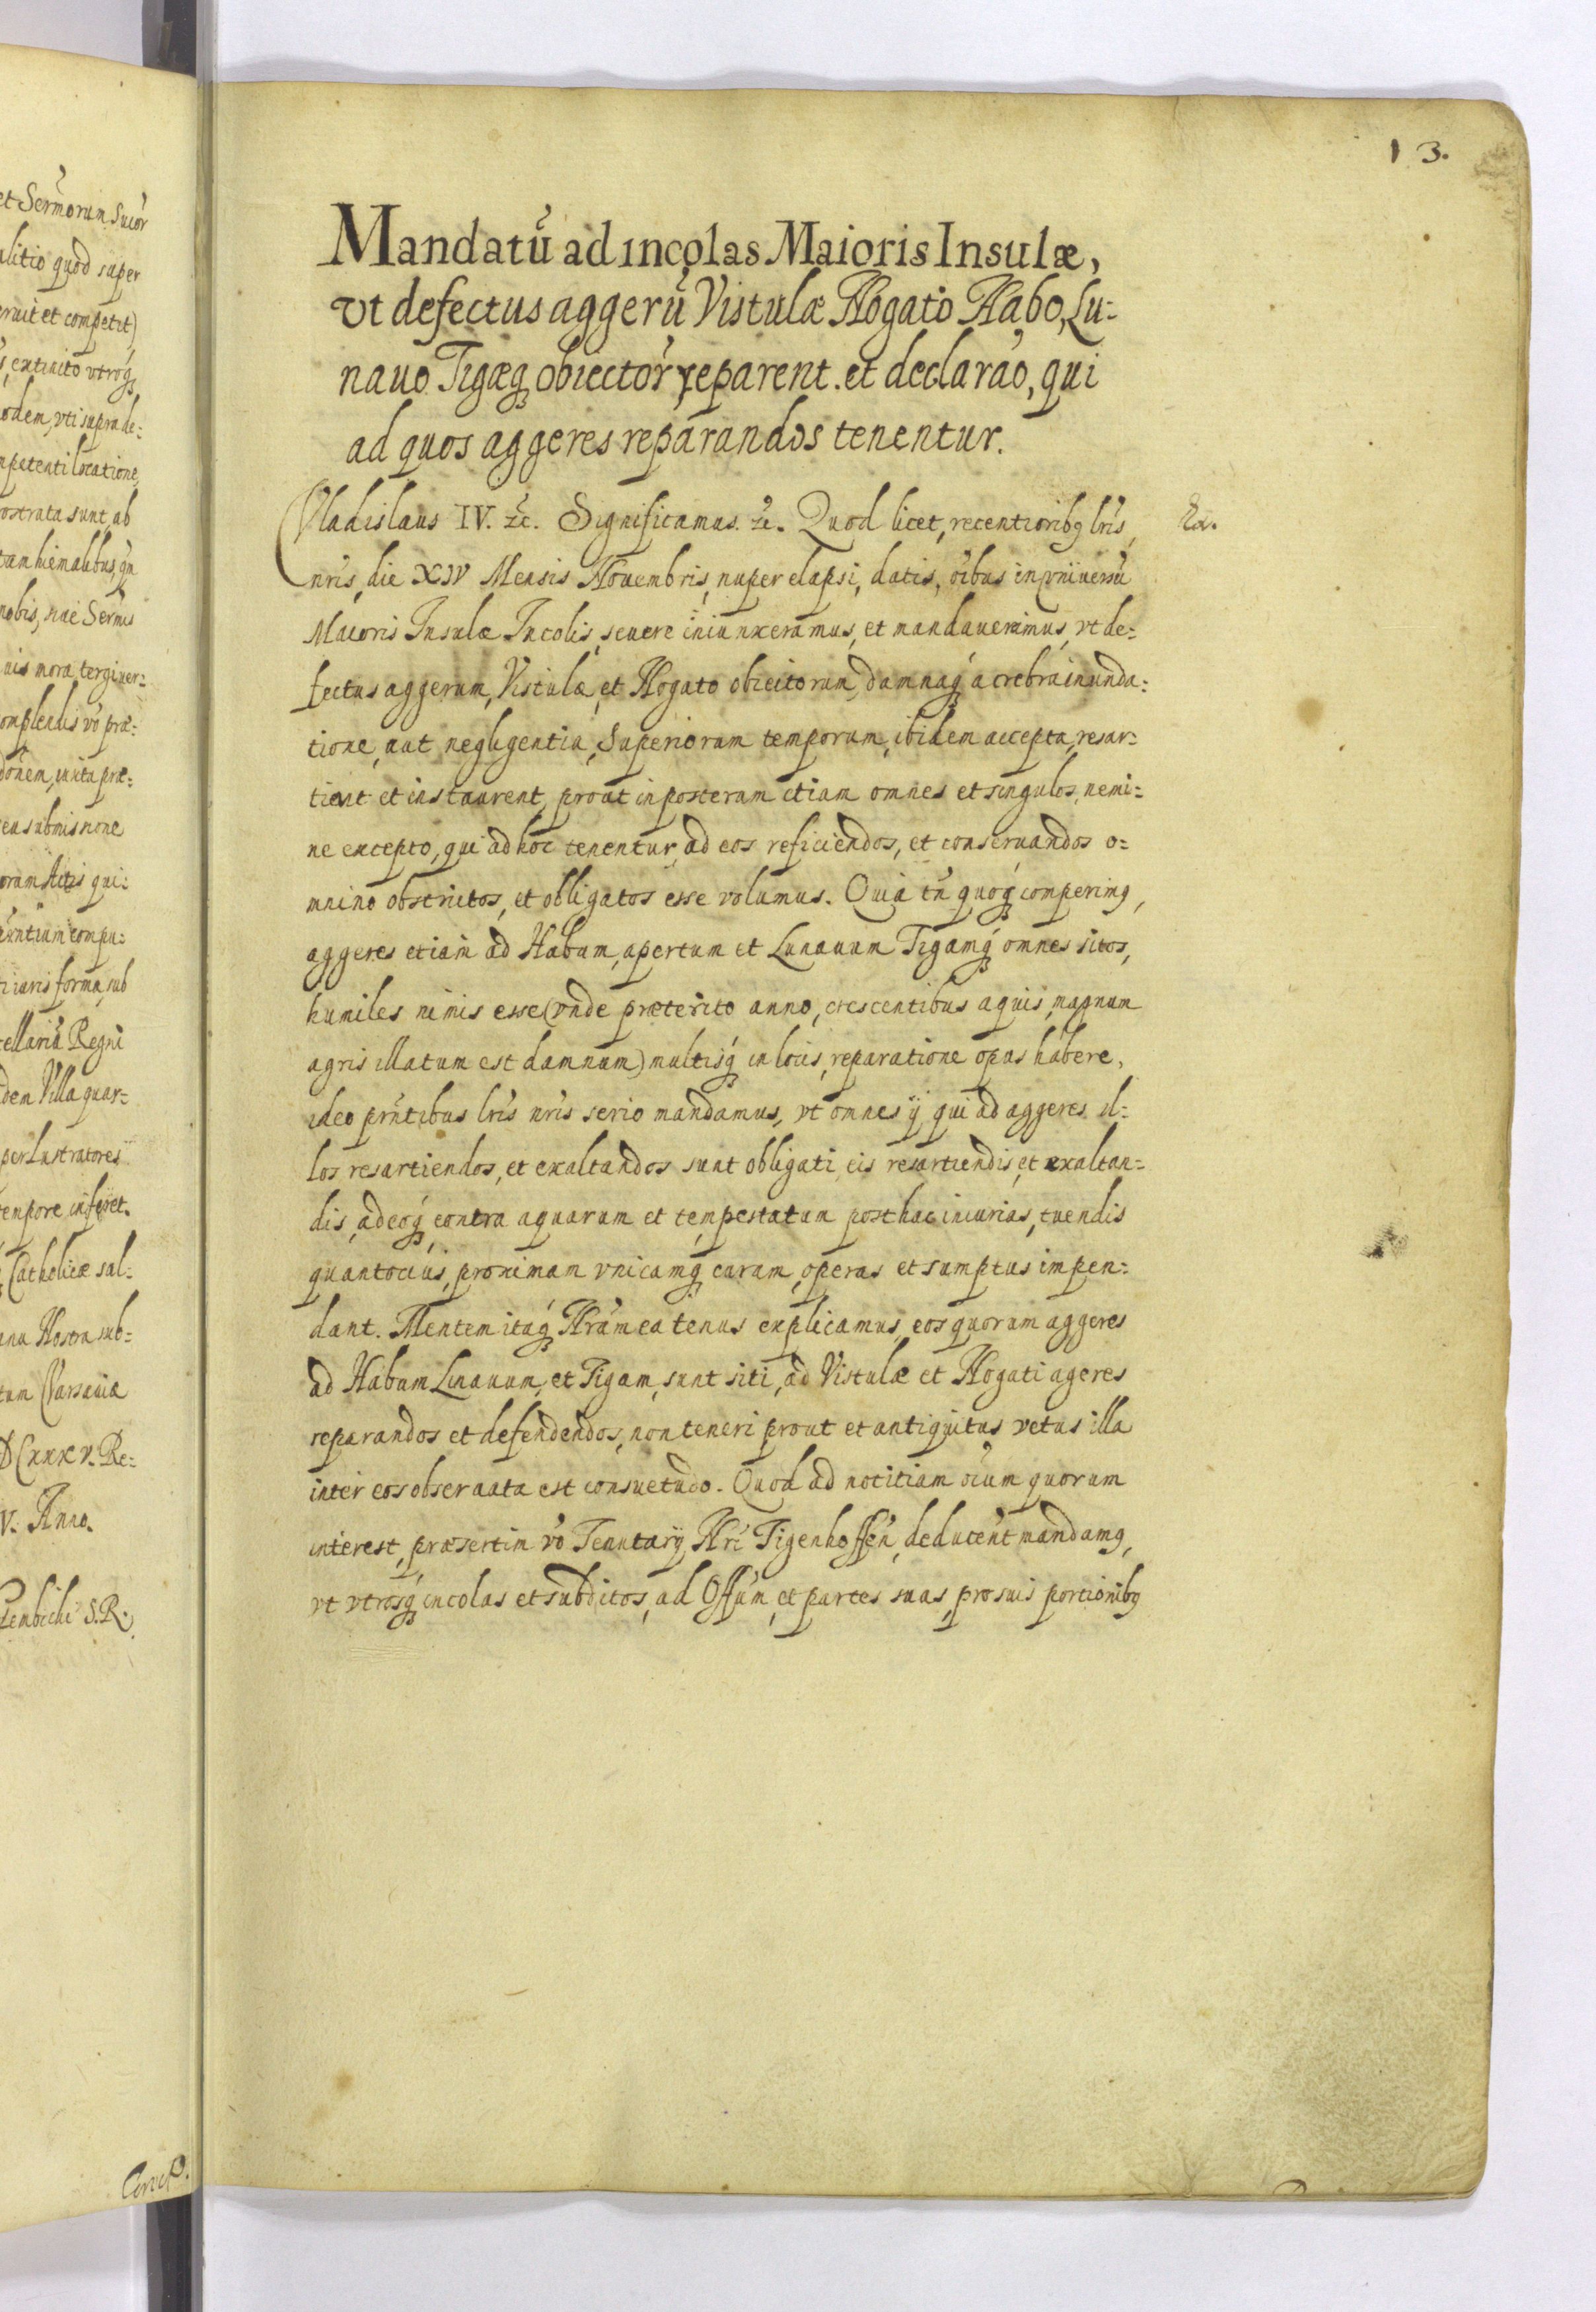 et Sermorum Sucor
alitio quod super
eruit et competit)
extincto vtroq
odem, vti supra de:
mpetenti locatione,
ostrata sunt, ab
tam hiemalibus, qn
nobis, nae Sermis
uis mora, tergiuer:
omplendis vo prae:
donem, iuxta prae:
ea submissione
orum Actis qui:
auntium compu:
ti iuris forma, sub
cellariu Regni
dem Villa quar:
per Lustratores
tempore inferet.
Catholicae sal:
anu Nostra sub:
tum Varsauiae
DCxxxv. Re:
V. Anno.
Gembicki S.R.
13.
Mandatū ad incolas Maioris Insulæ,
vt defectus aggerū Vistulæ Nogato Habo, Lu:
nauo Tigæq obiector reparent. et declarao, qui
ad quos aggeres reparandos tenentur.
Vladislaus IV. &c. Significamus. &c. Quod licet, recentiorib9 lris, Ex.
nris, die XIV Mensis Nouembris, nuper elapsi, datis, oibus in vniuersū
Maioris Insulæ Incolis, seuere iniunxeramus, et mandauerimus, vt de:
fectus aggerum, Vistulæ, et Nogato obiectorum, damnaq a crebra inunda:
tione, aut negligentia, Superiorum temporum, ibidem accepta, resar:
tient et instaurent, prout in posterum etiam omnes et singulos, nemi:
ne excepto, qui ad hoc tenentur, ad eos reficiendos, et conseruandos o:
mnino obstrictos, et obligatos esse volumus. Quia tn quoq comperim9,
aggeres etiam ad Habum, apertum et Lunauum Tigamq omnes sitos,
humiles nimis esse (vnde præterito anno, crescentibus aquis, magnum
agris illatum est damnum) multisq in locis, reparatione opus habere,
ideo prntibus lris nris serio mandamus, vt omnes ij qui ad aggeres il:
los resartiendos, et exaltandos sunt obligati, eis resartiendis, et exaltan:
dis, adeoq contra aquarum et tempestatum posthac iniurias, tuendis
quantocius, proximam vnicamq curam, operas et sumptus impen:
dant. Mentem itaq Nram ea tenus explicamus, eos quorum aggeres
ad Habum Linauum, et Tigam, sunt siti, ad Vistulæ et Nogati ageres
reparandos et defendendos, non teneri prout et antiquitus vetus illa
inter eos obseruata est consuetudo. Quod ad notitiam oium quorum
interest, præsertim vo Tenutarij Nri Tigenhoffen, deducent mandam9,
vt vtrosq incolas et subditos, ad Offum, et partes suas, pro suis portionib9